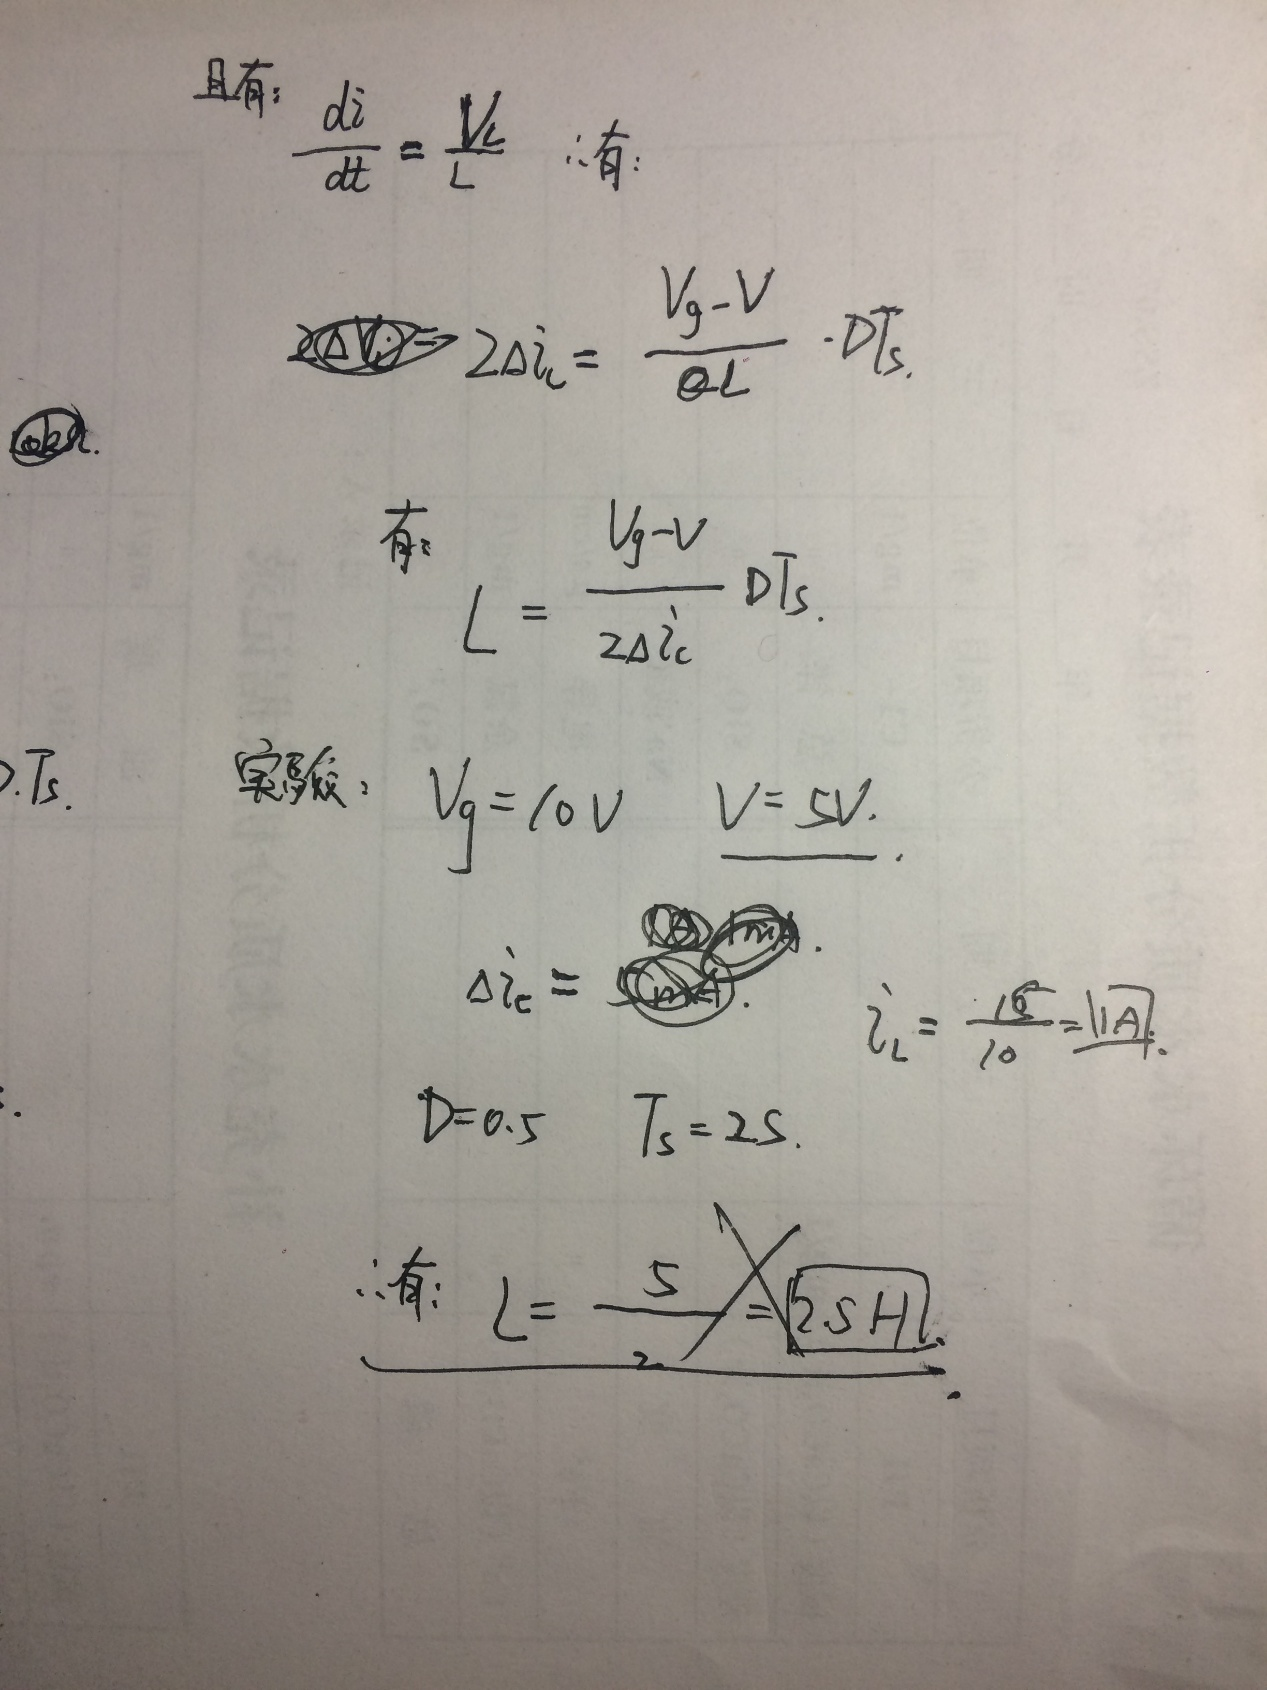 且有:
di/dt = V_L/L ∴有:
2Δi_L = (Vg-V)/L · DTs.
有:
L = (Vg-V)/(2Δi_c) DTs.
D.Ts. 实验: Vg=10V V=5V.
Δi_c =
i_L = /10 = 1A.
D=0.5 Ts=2S.
∴有: L = 5/2 = 2.5H.